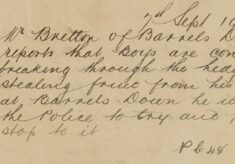 2nd Sept 19
Mr Bretton of Barrels D
reports that Boys are con
breaking through the hed
stealing fruit from his
at Barrels Down he w
the Police to try and p
stop to it
P C 48